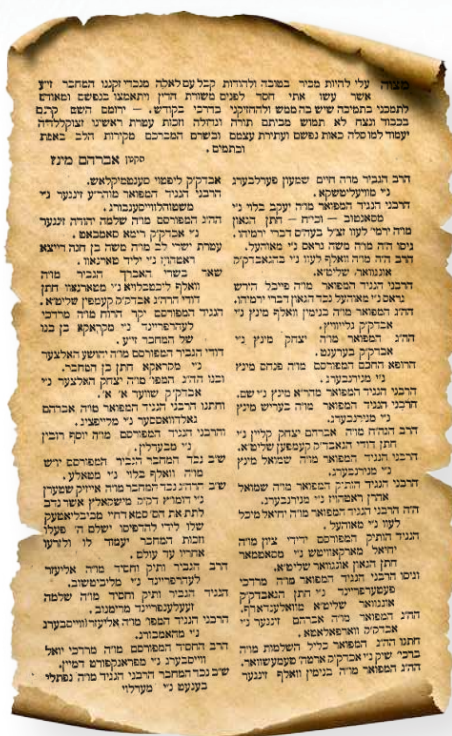 מצוה עלי להיות מכיר בטובה ולהודות קבל עם לאלה מנכדי זקננו המחבר זי״ע
אשר עשו אתי חסד לפנים משורת הדין ויתאמצו בנפשם ומאודם
לתמכני בתמיכה שיש בה ממש ולהחזיקני בדרכי בקודש. — ירומם השם קרנם
בכבוד ונצח לא תמוש מביתם תורה וגדולה וזכות עטרת ראשינו זצוקללה״ה
יעמוד למו סלה כאות נפשם ועתירת עצמם וכשרם המברכם מקירות הלב באפת
וכתמים.
הקטן אברהם מינז
הרב הגביר מו״ה חיים שמעון פערלבערג
ני׳ מוויעליטשקא.
הרבני הנגיד המפואר מו״ה יעקב בלוי ני׳
מסאנטוב — וכ״ח — חתן הגאון
מו״ה ירמי׳ לעוו זצ״ל בעה״ס דברי ירמיהו.
גיסו ה״ה מו״ה משה גראס ני׳ מאוהעל.
הרב ה״ה מו״ה וואלף לעוו ני׳ בהגאבדק״ק
אונגוואר שליט״א.
הרבני הנגיד המפואר מו״ה פייבל הירש
גראס ני׳ מאוהעל נכד הגאון דברי ירמיהו.
הה״ג המפואר מו״ה בנימין וואלף מינץ ני׳
אבדק״ק גלייוויץ.
הה״ג המפואר מו״ה יצחק מינץ ני׳
אבדק״ק בערענט.
הרופא החכם המפורסם מו״ה פנחס מינץ
ני׳ מנירנבערג.
הרבני הנגיד המפואר מהר״א מינץ ני׳ שם.
הרבני הנגיד המפואר מו״ה בעריש מינץ
ני׳ מנירנבערג.
הרב הגה״ח מו״ה אברהם יצחק קליין ני׳
חתן דודי הגאבדק״ק קעמפען שליט״א.
הרבני הנגיד המפואר מו״ה שמואל מינץ
ני׳ מנירנבערג.
הרבני הנגיד הותיק המפואר מו״ה שמואל
אהרן ראטהויז ני׳ מנירנבערג.
ה״ה הרבני הנגיד המפואר מו״ה יחיאל מיכל
לעוו ני׳ מאוהעל.
הנגיד הותיק המפורסם ידידי ציון מו״ה
יחיאל מארקאוויטש ני׳ מסאטמאר
חתן הגאון אונגוואר שליט״א.
וגיסו הרבני הנגיד המפואר מו״ה מרדכי
פעטערפריינד ני׳ חתן הגאבדק״ק
אונגוואר שליט״א מוואלענדארף.
הה״ג המפואר מו״ה אברהם זינגער ני׳
אבדק״ק ווארפאלאטא.
חתנו הה״ג המפואר כליל השלמות מו״ה
ברכי׳ שיק ני׳ אבדק״ק ארטה׳ טעמעשוואר.
הה״ג המפואר מו״ה בנימין וואלף זינגער
אבדק״ק ליפטוי סענטמיקלאש.
הרבני הנגיד המפואר מוהר״ע זינגער ני׳
משטוהלווייסענבורג.
הה״ג המפורסם מו״ה שלמה יהודה זינגער
ני׳ אבדק״ק רימא סאמבאט.
עטרת ישרי לב מו״ה משה בן חנה דייטא
ראטהויז ני׳ יליד טארנאוו.
שאר בשרי האברך הגביר מו״ה
וואלף ליכטבלויא ני׳ מטארנאוו חתן
דודי הרה״ג אבדק״ק קעמפין שליט״א.
הנגיד המפורסם יקר הרוח מו״ה מרדכי
לעהרפריינד ני׳ מקראקא בן בנו
של המחבר זי״ע.
דודי הנגיד המפורסם מו״ה יהושע האלצער
ני׳ מקראקא חתן בן המחבר.
ובנו הה״ג המפו׳ מו״ה יצחק האלצער ני׳
אבדק״ק שווער א׳ א׳.
וחתנו הרבני הנגיד המפואר מו״ה אברהם
גאלדוואסער ני׳ מלייפציג.
והרבני הנגיד המפורסם מו״ה יוסף רובין
ני׳ מבערלין.
ש״ב נכד המחבר הגביר המפורסם יו״ש
מו״ה וואלף בלוי ני׳ מטאלע.
ש״ב הרה״ג נכד המחבר מו״ה אייזיק שטערן
ני׳ דומו״ץ דק״ק מישקאלץ אשר נדב
לתת את הססמא דחיי מביבליאטעק
שלו לידי להדפיסו ישלם ה׳ פעלו
וזכות המחבר יעמוד לו ולזרעו
אחריו עד עולם.
הרב הגביר ותיק וחסיד מו״ה אליעזר
לעהרפריינד ני׳ מליכטשוב.
הנגיד הגביר ותיק וחסיד מו״ה שלמה
זעעלענפריינד מרימנוב.
הרבני הנגיד המפו׳ מו״ה אליעזר ווייסבערג
ני׳ מהאמבורג.
הרב החסיד המפורסם מו״ה מרדכי יואל
ווייסבערג ני׳ מפראנקפורט דמיין.
ש״ב נכד המחבר הרבני הנגיד מו״ה נפתלי
בענעט ני׳ מערלוי